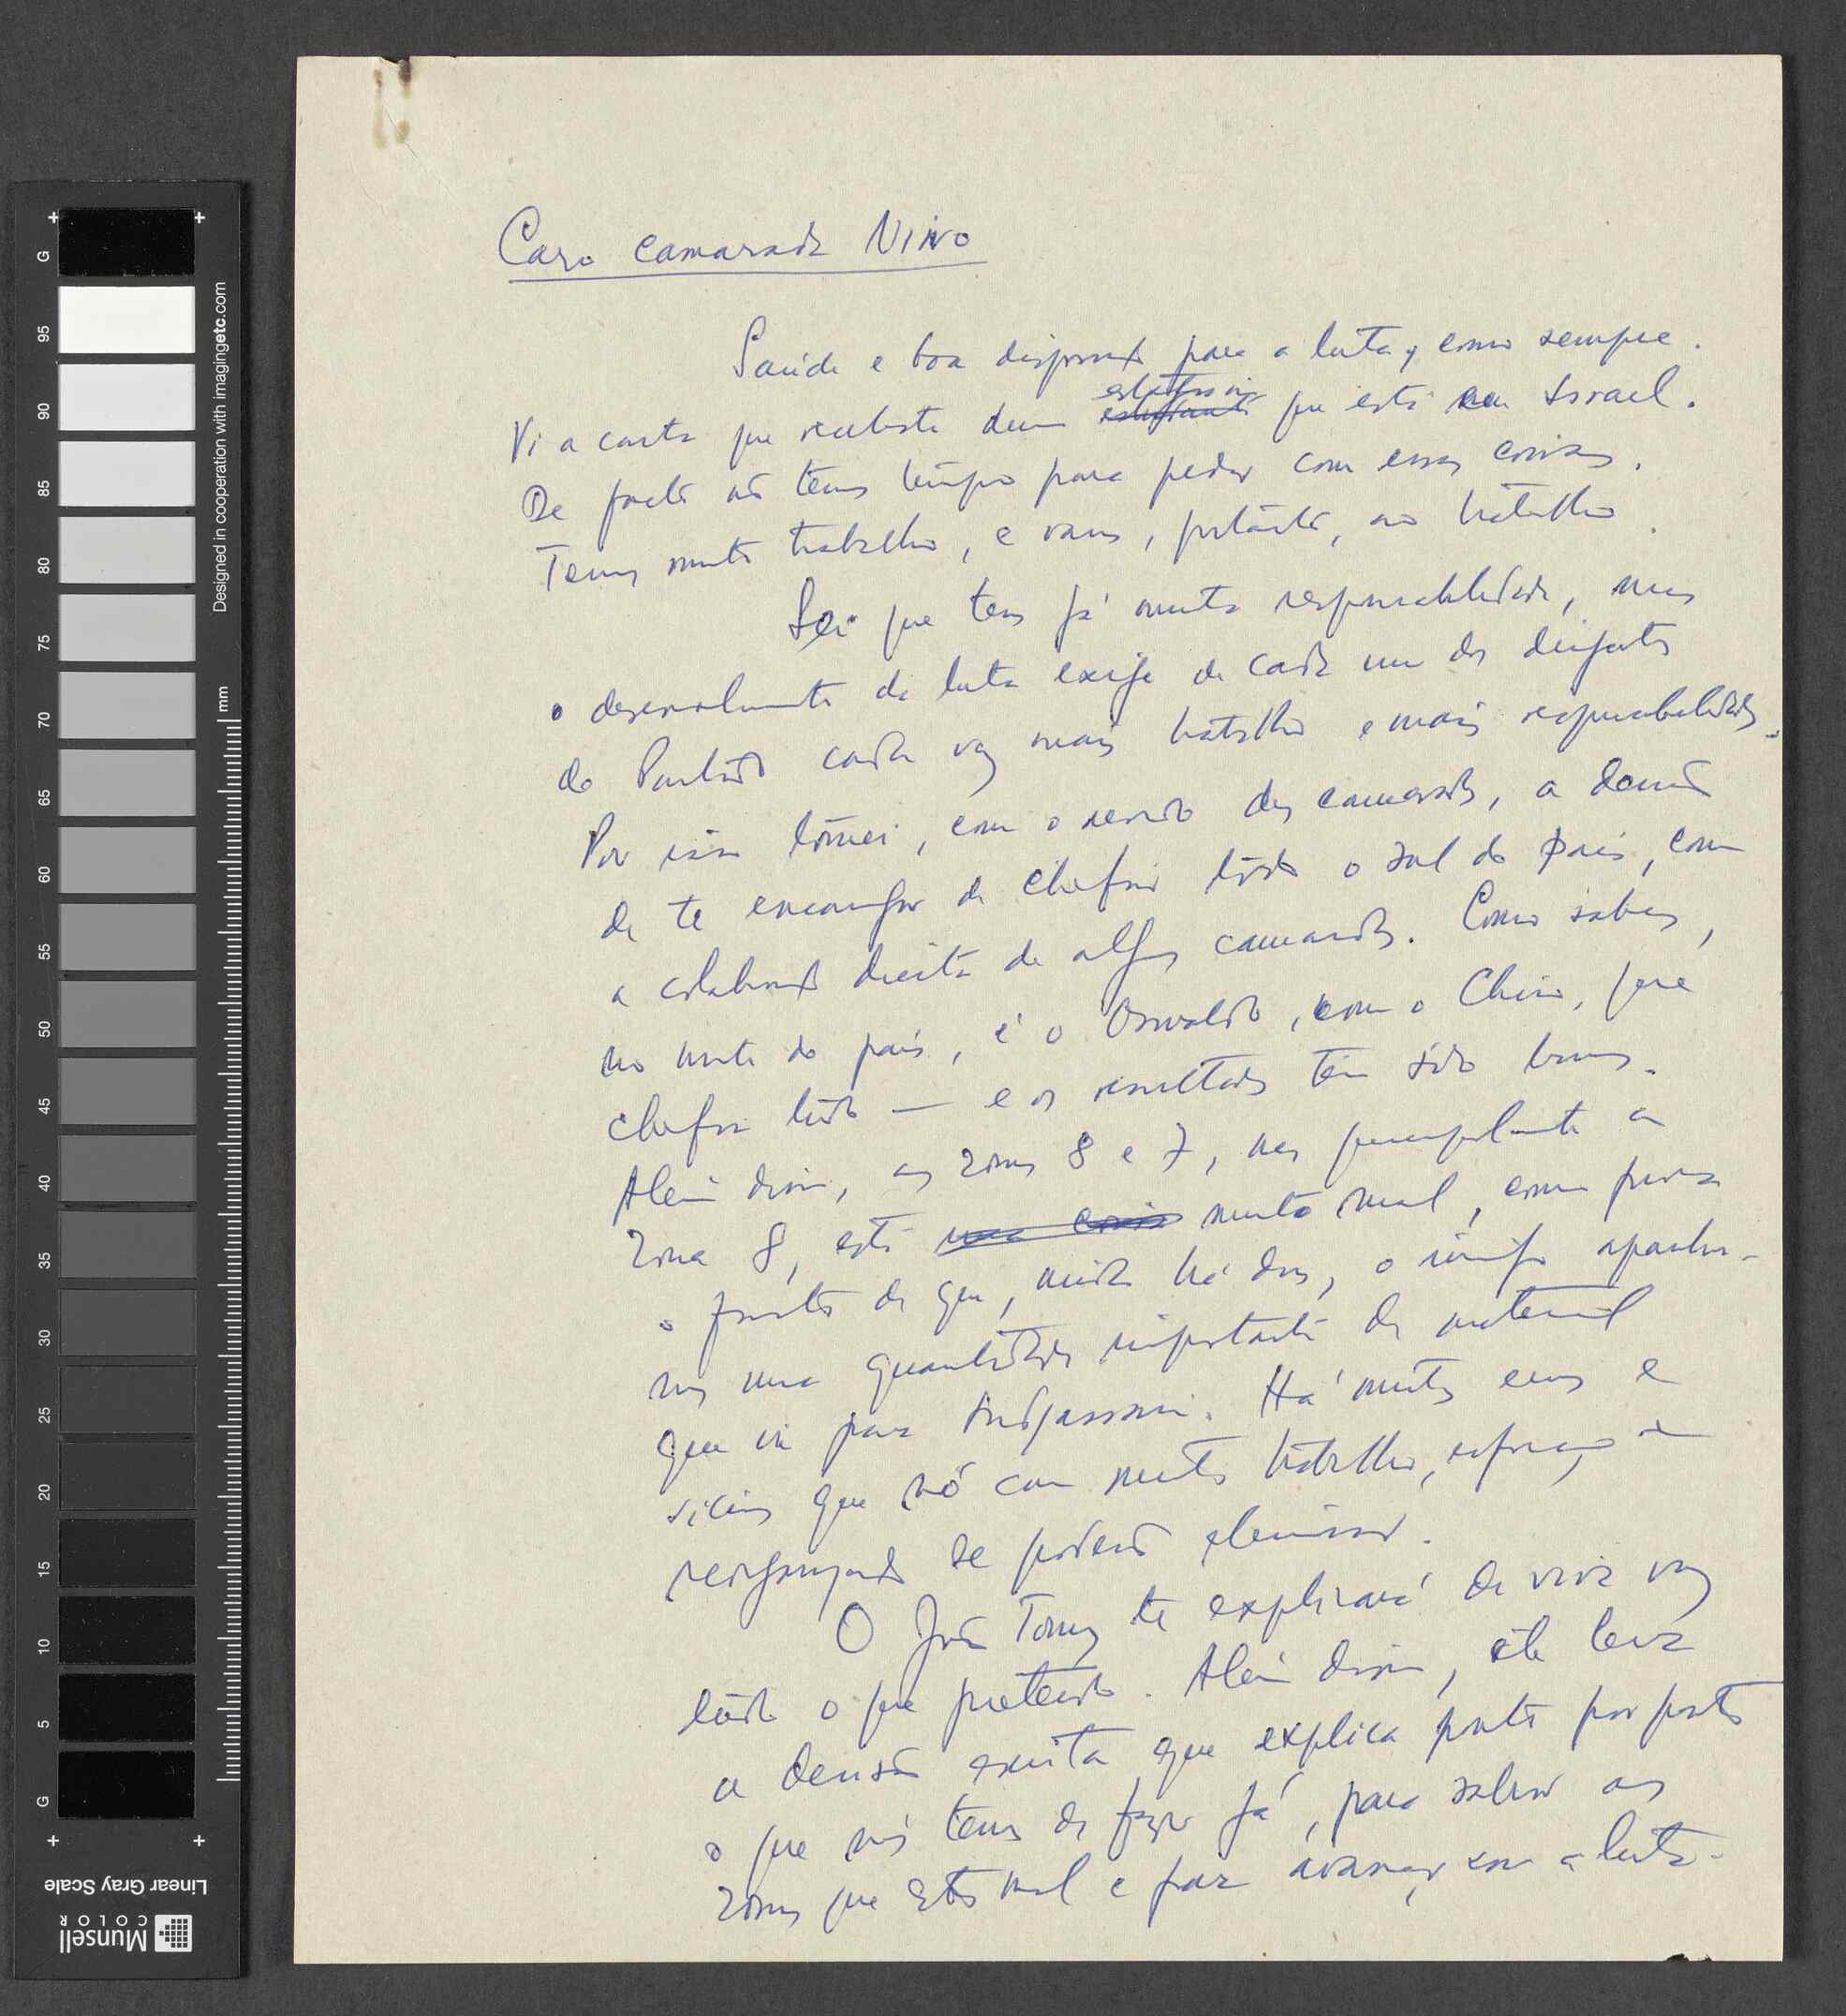 Caro camarada NINO
Saúde e boa disposição para a luta, como sempre.
Vi a carta que recebeste dum que está em Israel.
De facto não temos tempo para perder com essas coisas.
Temos muito trabalho, e vamos, portanto, ao trabalho.
Sei que tens já muita responsabilidade, mas
o desenvolvimento da luta exige de cada um dos dirigentes
do Partido cada vez mais trabalho e mais responsabilidades.
Por isso tomei, com o acordo dos camaradas, a decisão
de te encarregar de chefiar todo o sul do país, com
a colaboração directa de alguns camaradas. Como sabes,
no norte do país, é o Osvaldo, com o Chico, que
chefia tudo — e os resultados têm sido bons.
Além disso, as zonas 8 e 7, mas principalmente a
zona 8, está muito mal, como prova
o facto de que, ainda há dias, o inimigo apanhou-
nos uma quantidade importante de material
que ia para Indjassane. Há muitos erros e
vícios que só com muito trabalho, esforço e
reorganização se poderão eliminar.
O João Tomas te explicará de viva voz
tudo o que pretendo. Além disso, ele leva
a decisão escrita que explica ponto por ponto
o que nós temos de fazer já, para salvar as
zonas que estão mal e fazer avançar com a luta.
Designed in cooperation with imagingetc.com
mm
G
95
90
85
80
75
70
65
60
55
50
45
40
35
30
25
20
15
10
5
G
Linear Gray Scale
Munsell
COLOR